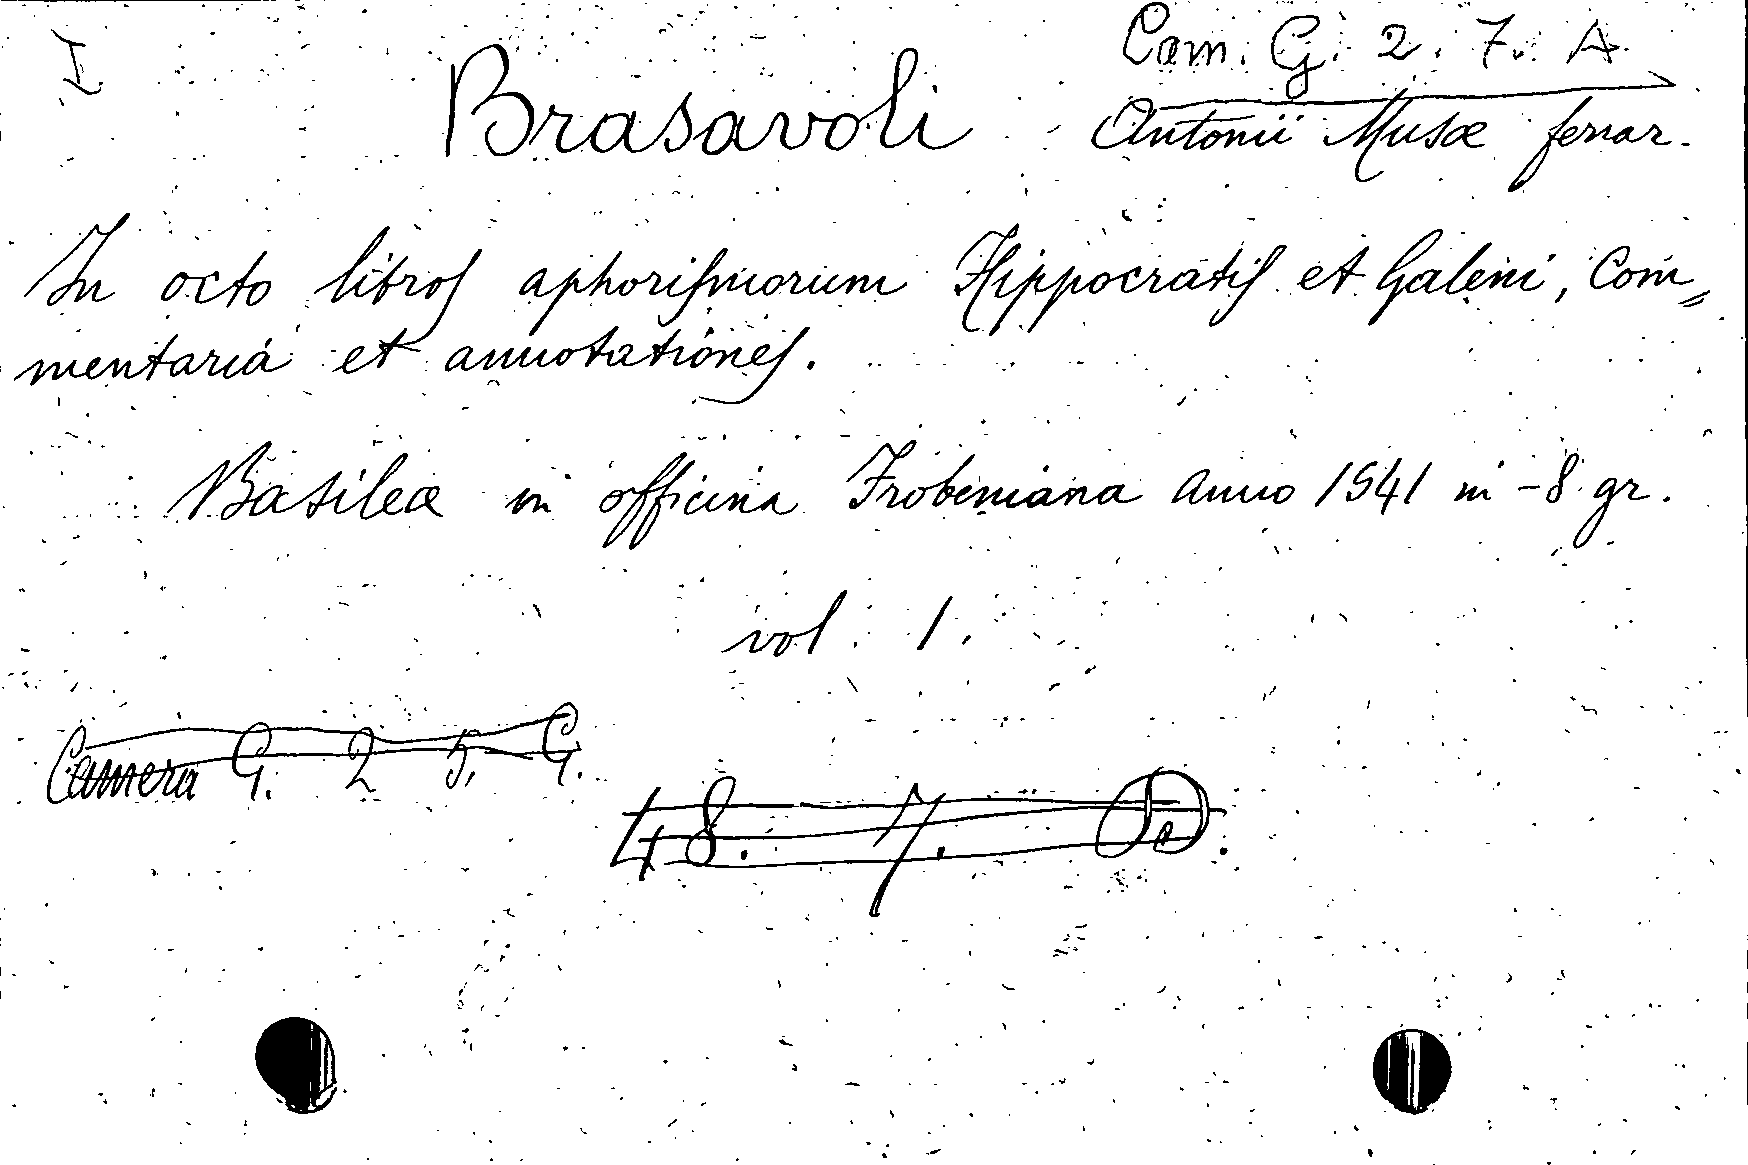 I
Cam. G. 2. 7. A
Brasavoli Antonii Musæ ferrar.
In octo libros aphorismorum Hippocratis et Galeni, Com„
mentaria et annotationes.
Basileæ in officina Frobeniana anno 1541 in-8. gr.
vol. 1.
Camera G. 2 5. G.
48. 7. D.